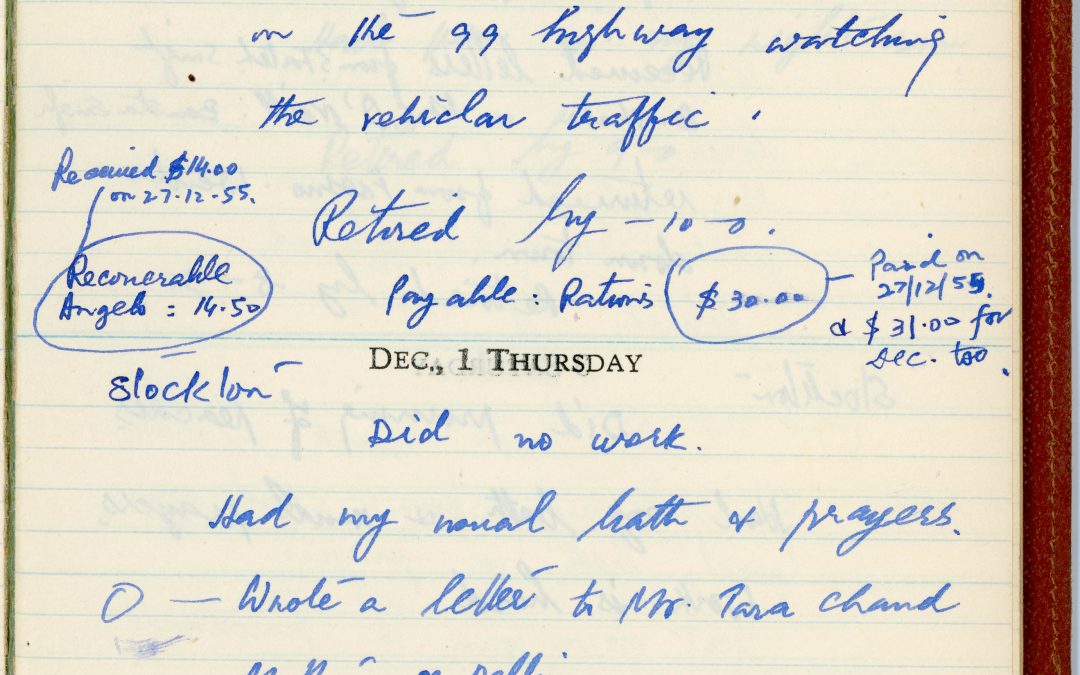 on the 99 highway watching
the vehiclar traffic.
Received $14.00
on 27-12-55.
Retired by - 10-0.
Reconerable
Angelo = 14.50
Payable: Rations $30.00
Paid on
27/12/55.
& $31.00 for
Dec. too.
DEC., 1 THURSDAY
Stockton
Did no work.
Had my usual bath & prayers.
O — Wrote a letter to Mr. Tara chand